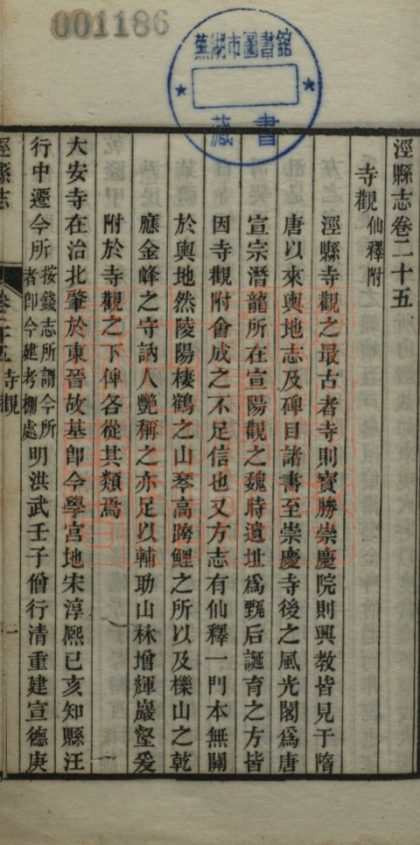 001186
蕪湖市圖書館
藏書
涇縣志卷二十五
寺觀 仙釋附
涇縣寺觀之最古者寺則寶勝崇慶院則興教皆見于隋
唐以來輿地志及碑目諸書至崇慶寺後之風光閣爲唐
宣宗潛龍所在宣陽觀之魏時遺址爲甄后誕育之方皆
因寺觀附會成之不足信也又方志有仙釋一門本無關
於輿地然陵陽棲鶴之山琴高跨鯉之所以及櫟山之乾
應金峰之守訥人艷稱之亦足以輔助山林增輝巖壑爰
附於寺觀之下俾各從其類焉
大安寺在治北肇於東晉故基卽今學宮地宋淳熙己亥知縣汪
行中遷今所 按錢志所謂今所者卽今建考棚處 明洪武壬子僧行清重建宣德庚
涇縣志
卷二十五 寺觀
一